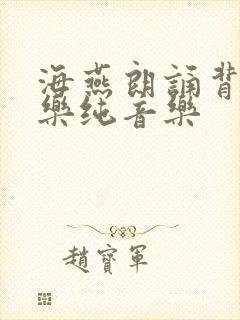 海燕朗誦背
樂纯音樂
趙寳軍